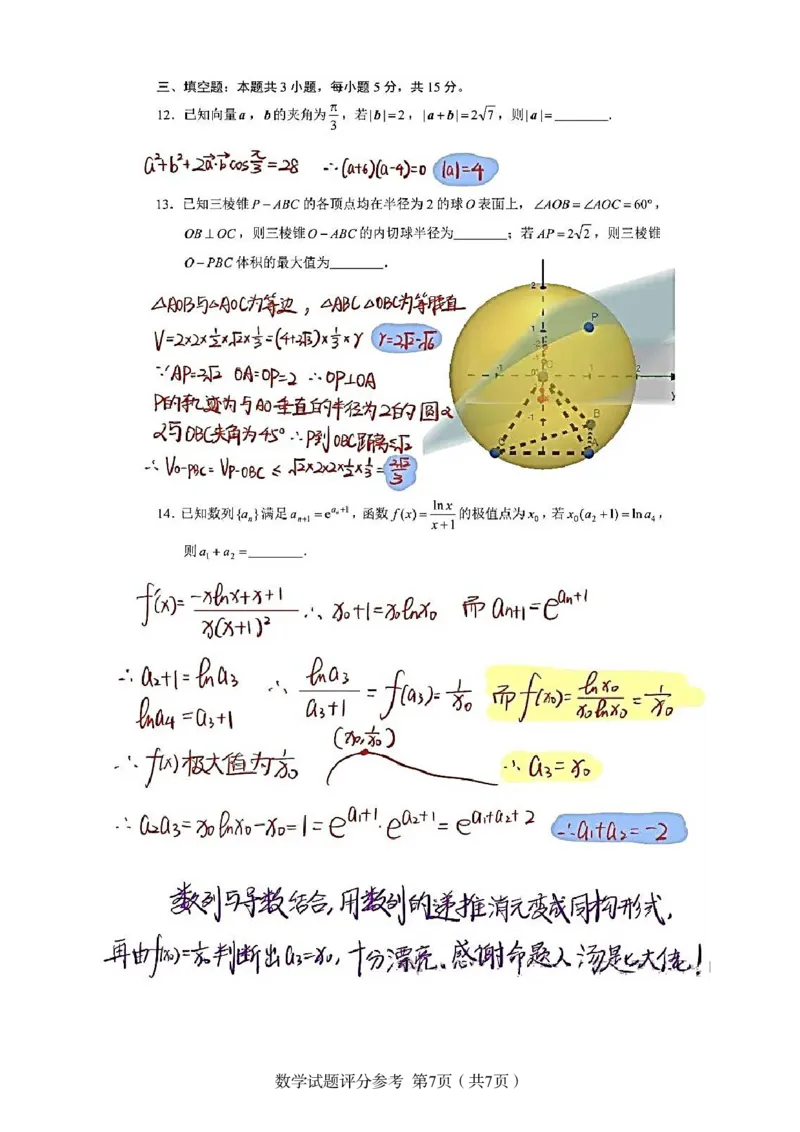 三、填空题：本题共 3 小题，每小题 5 分，共 15 分。
12．已知向量 a，b 的夹角为 π/3，若 |b|=2，|a+b|=2√7，则 |a|=________．
a²+b²+2a·b cos π/3=28 ∴(a+6)(a-4)=0 |a|=4
13．已知三棱锥 P－ABC 的各顶点均在半径为 2 的球 O 表面上，∠AOB=∠AOC=60°，
OB⊥OC，则三棱锥 O－ABC 的内切球半径为________；若 AP=2√2，则三棱锥
O－PBC 体积的最大值为________．
△AOB与△AOC为等边，△ABC △OBC为等腰直
V=2×2×1/2×√2×1/3=(4+2√3)×1/3×r r=2√2-√6
∵AP=2√2 OA=OP=2 ∴OP⊥OA
P的轨迹为与AO垂直的半径为2的圆α
α与OBC夹角为45° ∴P到OBC距离≤√2
∴V_{O-PBC}=V_{P-OBC}≤√2×2×2×1/2×1/3=2√2/3
14．已知数列 {aₙ} 满足 aₙ₊₁=e^{aₙ+1}，函数 f(x)=ln x/(x+1) 的极值点为 x₀，若 x₀(a₂+1)=ln a₄，
则 a₁+a₂=________．
f'(x)=(-xlnx+x+1)/(x(x+1)²) ∴x₀+1=x₀lnx₀ 而 aₙ₊₁=e^{aₙ+1}
∴a₂+1=lna₃ ∴lna₃/(a₃+1)=f(a₃)=1/x₀ 而f(x₀)=lnx₀/(x₀lnx₀)=1/x₀
lna₄=a₃+1
(x₀,1/x₀)
∴f(x)极大值为1/x₀ ∴a₃=x₀
∴a₂a₃=x₀lnx₀-x₀=1=e^{a₁+1}·e^{a₂+1}=e^{a₁+a₂+2} ∴a₁+a₂=-2
数列与导数结合,用数列的递推消元变成同构形式,
再由f(x₀)=1/x₀判断出a₃=x₀,十分漂亮.感谢命题人汤是七大佬!
数学试题评分参考 第7页（共7页）